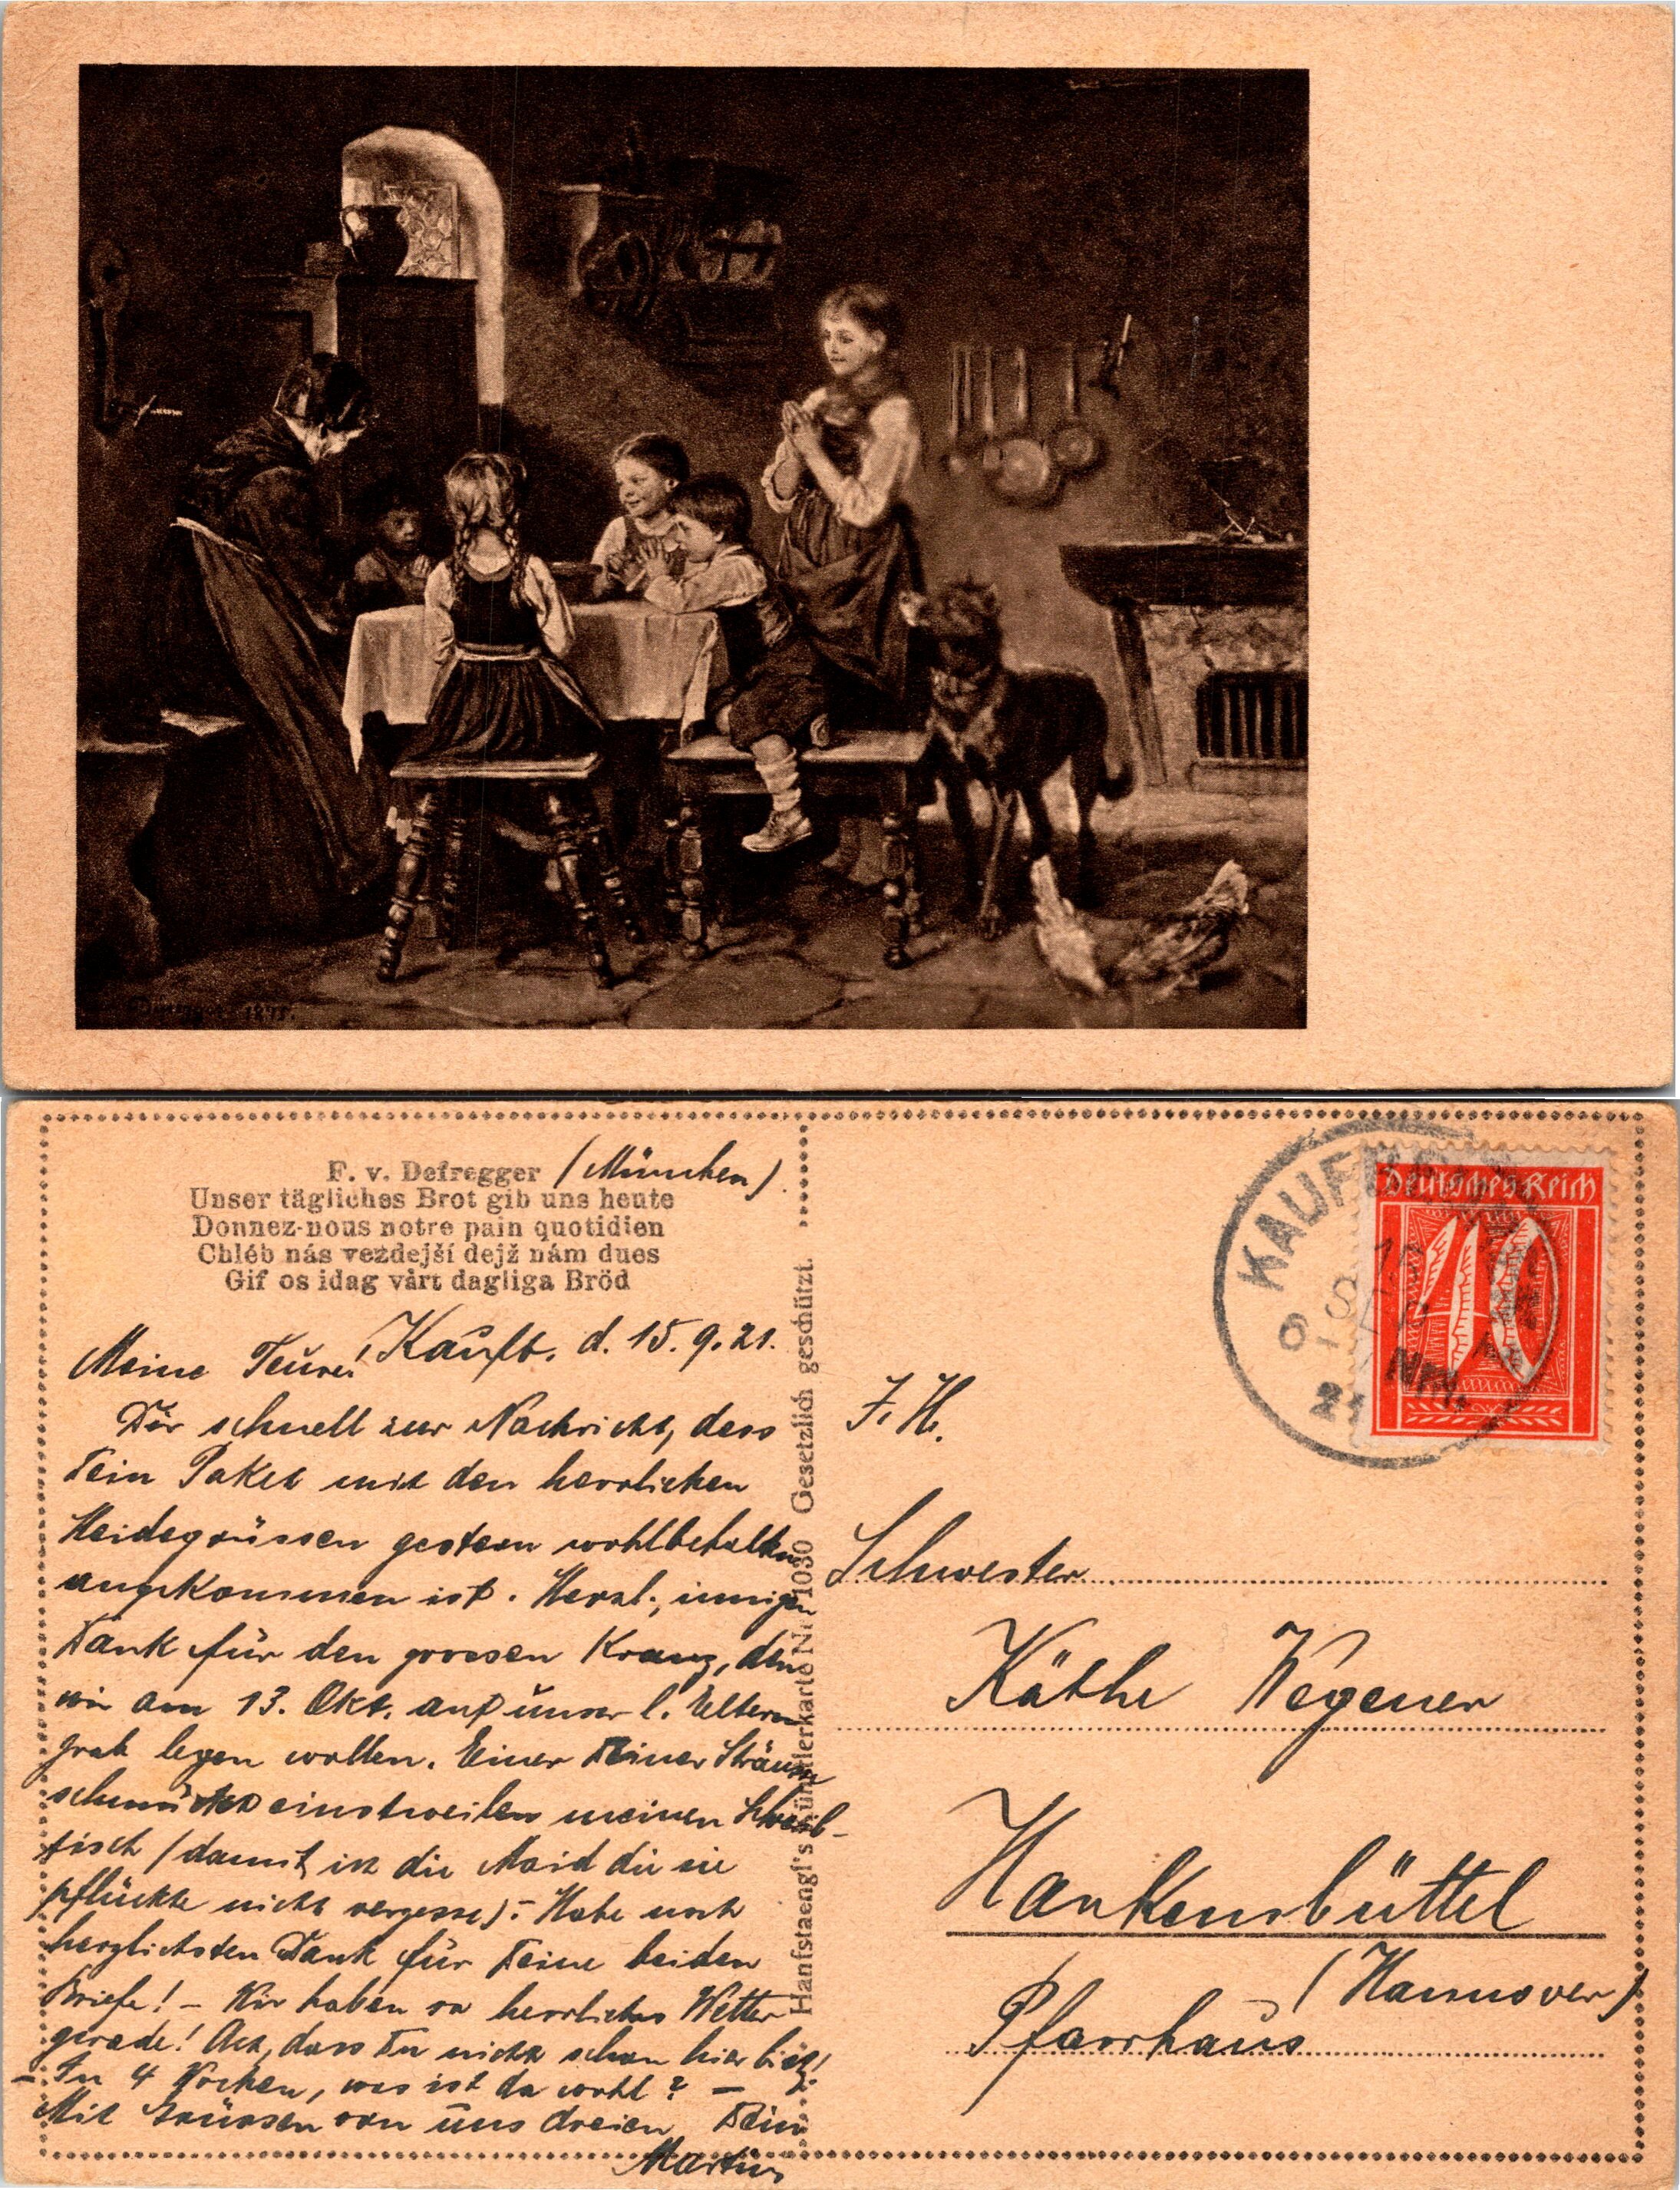 Defregger 1875.
F. v. Defregger (München).
Unser tägliches Brot gib uns heute
Donnez-nous notre pain quotidien
Chléb nás vezdejší dejž nám dues
Gif os idag vårt dagliga Bröd
Kaufb. d. 15. 9. 21.
Meine Teure!
Dir schnell zur Nachricht, dass
Dein Paket mit den herrlichen
Heidegrüssen gestern wohlbehalten
angekommen ist. Herzl., innigen
Dank für den grossen Kranz, den
wir am 13. Okt. auf unser l. Eltern
grab legen wollen. Einer Deiner Sträusse
schmückt einstweilen meinen Schreib-
tisch (damit ich die Maid die sie
pflückte nicht vergesse). - Habe noch
herzlichsten Dank für Deine beiden
Briefe! - Wir haben so herrliches Wetter
gerade! Ach, dass Du nicht schon hier bist!
- In 4 Wochen, was ist da wohl? -
Mit Grüssen von uns dreien Dein
Martin
Hanfstaengl's Künstlerkarte Nr. 1030 Gesetzlich geschützt.
KAUFB
21 Nm.
Deutsches Reich
40
F. H.
Schwester
Käthe Wegener
Hankensbüttel
(Hannover)
Pfarrhaus